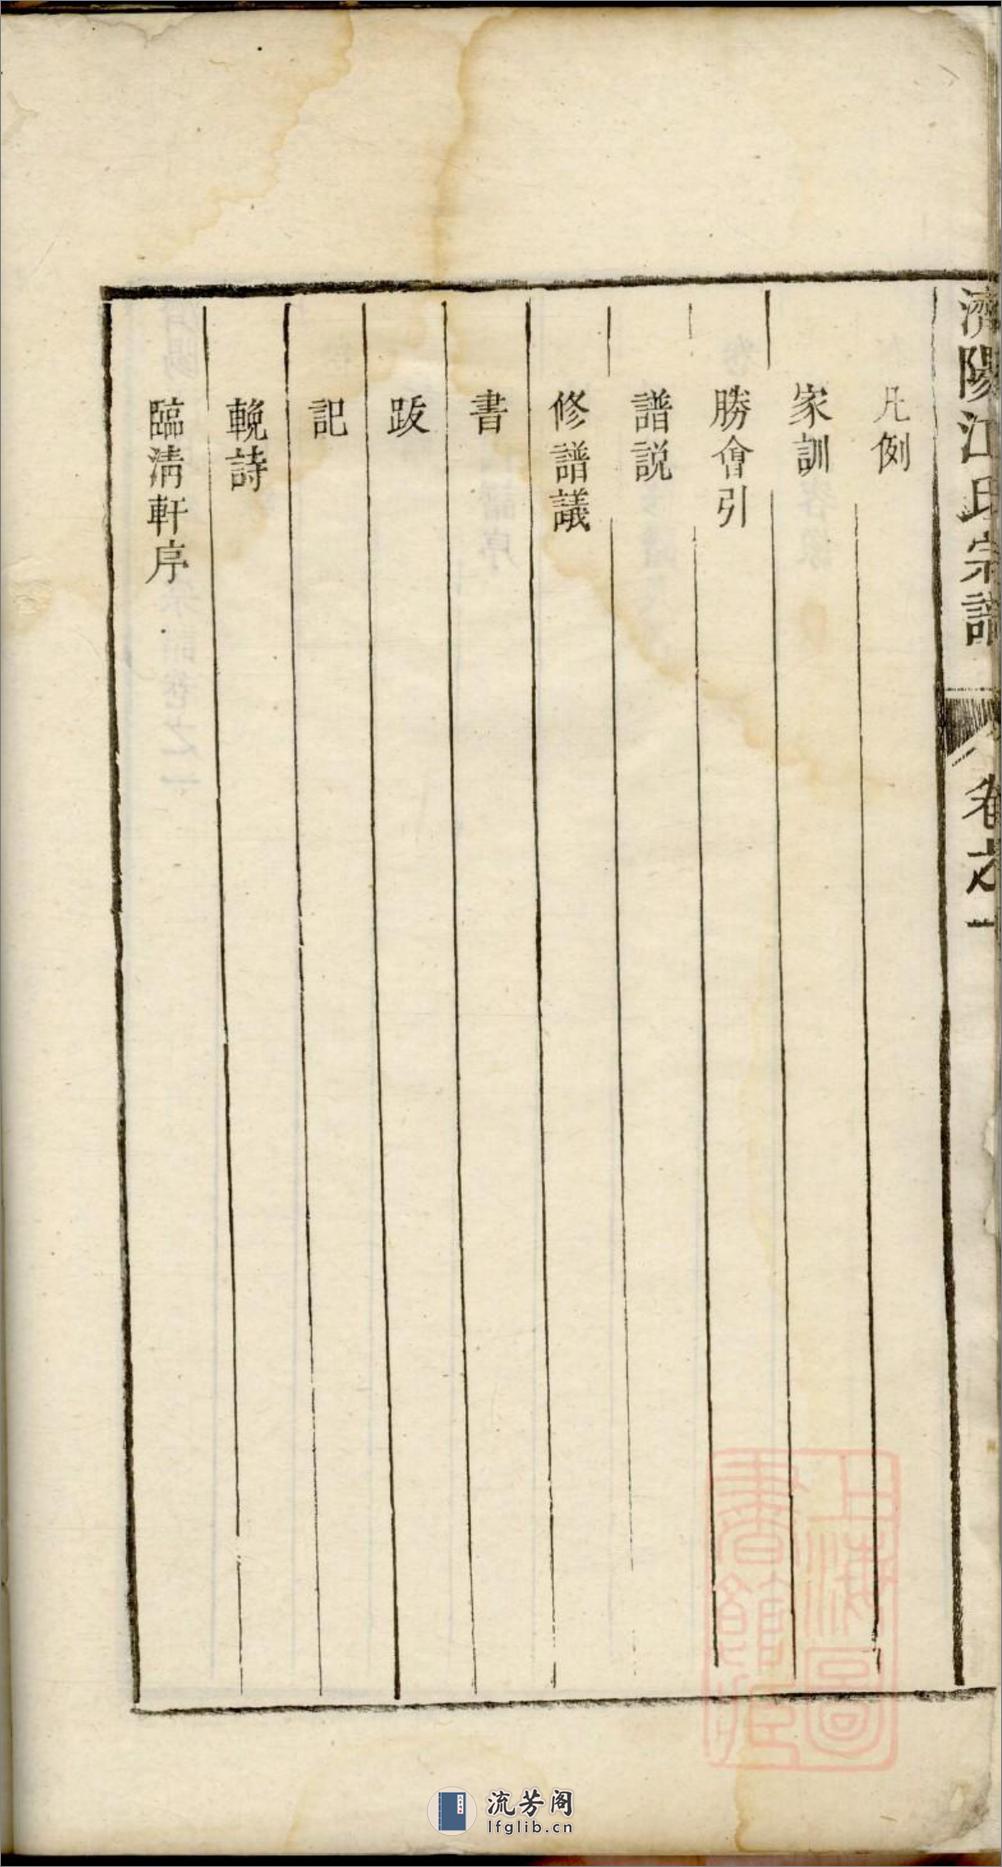 濟陽江氏宗譜
卷之一
凡例
家訓
勝會引
譜説
修譜議
書
跋
記
輓詩
臨清軒序
上海圖
書館藏
流芳阁
lfglib.cn